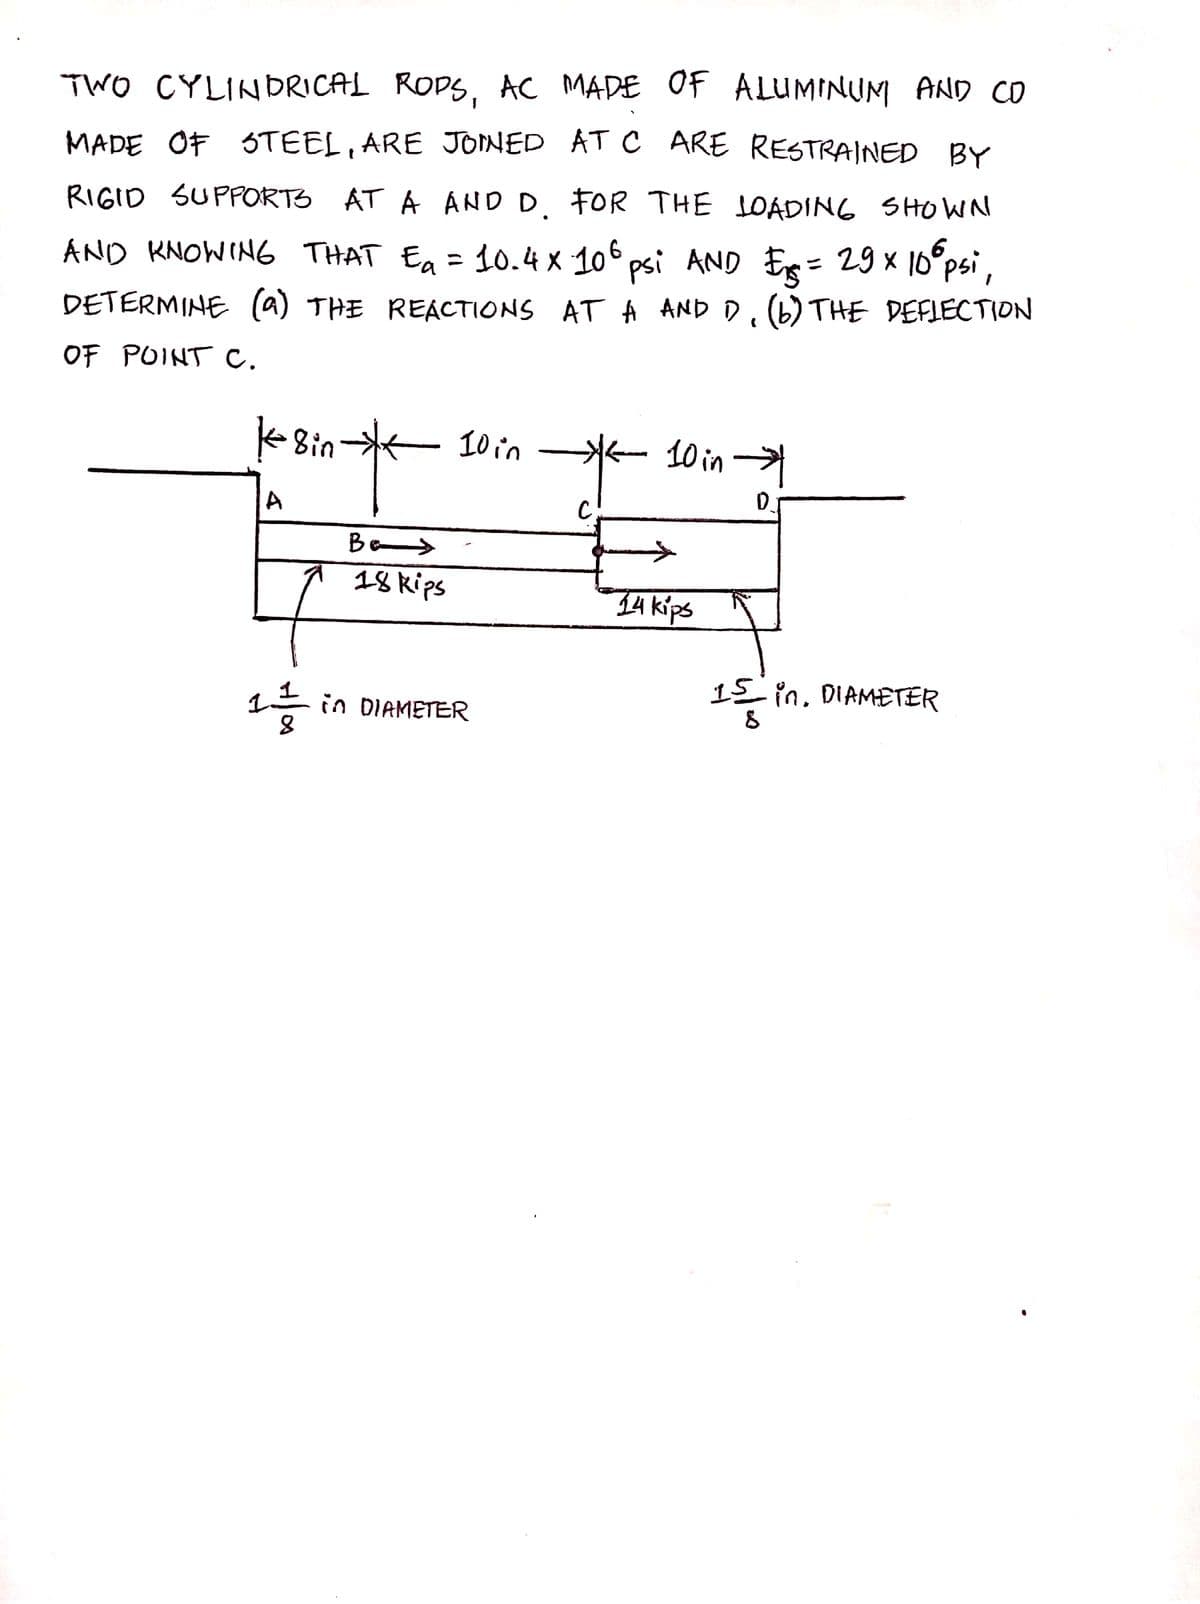 TWO CYLINDRICAL RODS, AC MADE OF ALUMINUM AND CD
MADE OF STEEL, ARE JOINED AT C ARE RESTRAINED BY
RIGID SUPPORTS AT A AND D. FOR THE LOADING SHOWN
AND KNOWING THAT Ea = 10.4 x 10⁶ psi AND Es = 29 x 10⁶ psi,
DETERMINE (a) THE REACTIONS AT A AND D, (b) THE DEFLECTION
OF POINT C.
8in 10in 10in
A C D
B
18 kips
14 kips
1 1/8 in DIAMETER
1 5/8 in. DIAMETER